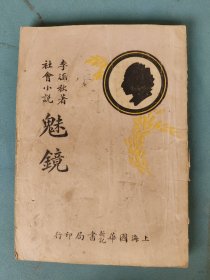 李涵秋著
社會小說
魅鏡
上海國華新記書局印行